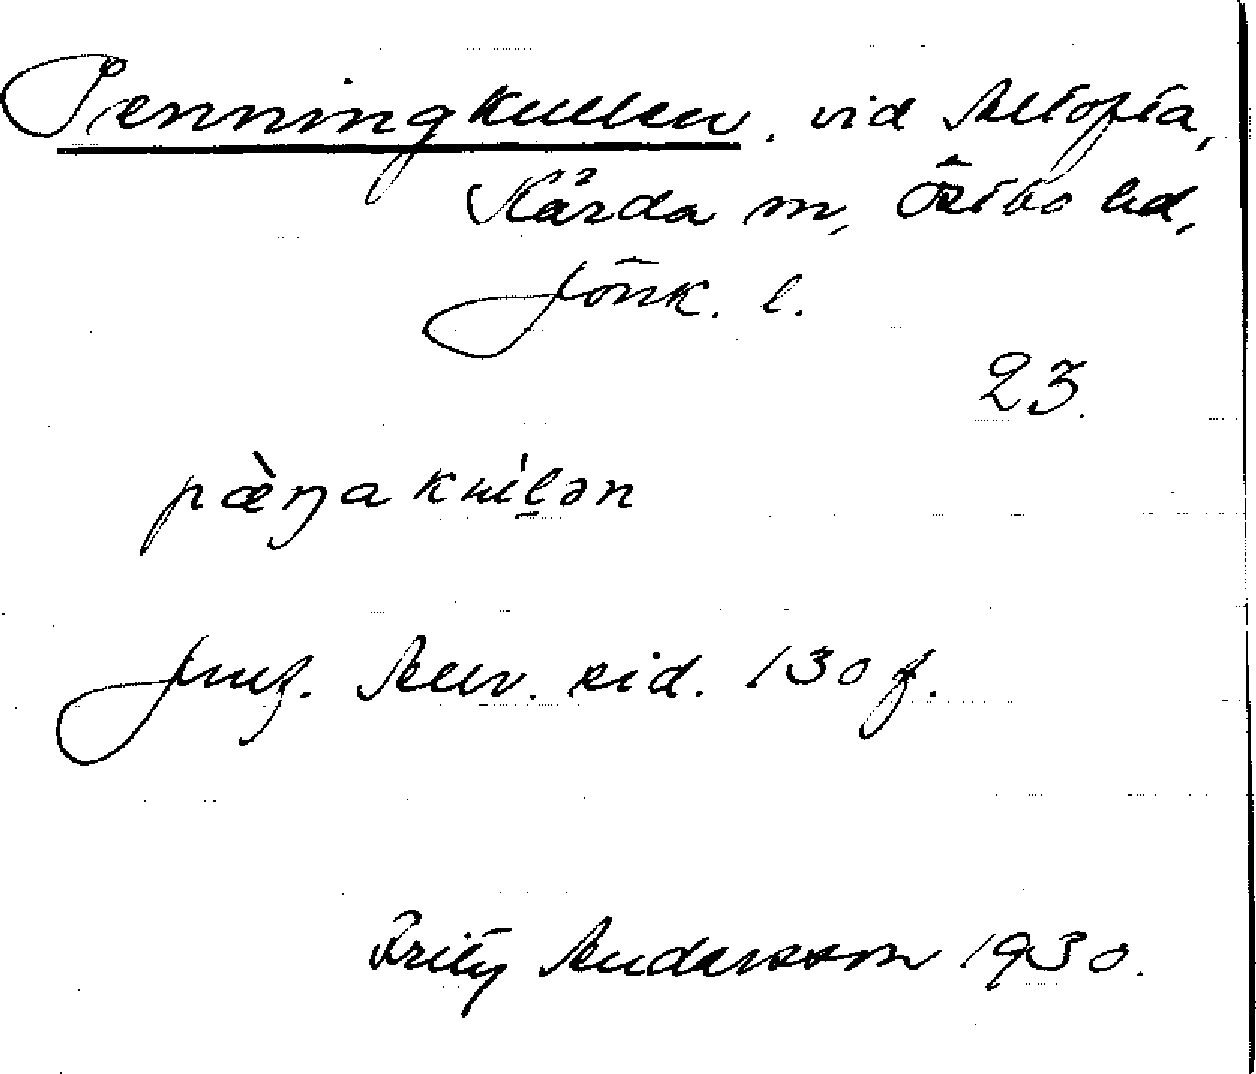 Penningkullen. vid Altofta,
Kärda sn, Östbo hd,
Jönk. l.
23.
pæ̀ŋakuĺ̠ən
Jmf. Allv. sid. 130 f.
Fritz Andersson 1930.